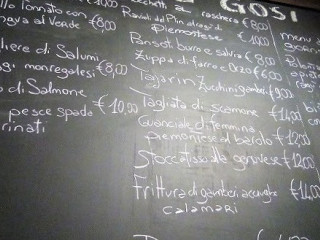 GOSI
llo Tonnato con €8,00
gnava al Verde
iere di Salumi
gi monregalesi €8,00
o di Salmone
pesce spada €10,00
rinati
a raschera €8,00
Ravioli del Plin al sugo di
Piemontese €
Pansoti burro e salvia €8,00
Zuppa di farro e Orzo €6,00
Tajarin Zucchini gamberi €9,00
Tagliata di scamone €14,00
Guanciale di femmina
piemontese al barolo €12,00
Stoccafisso alla genovese €12,00
Frittura di gamberi acciughe €14,00
calamari
menu
giorn